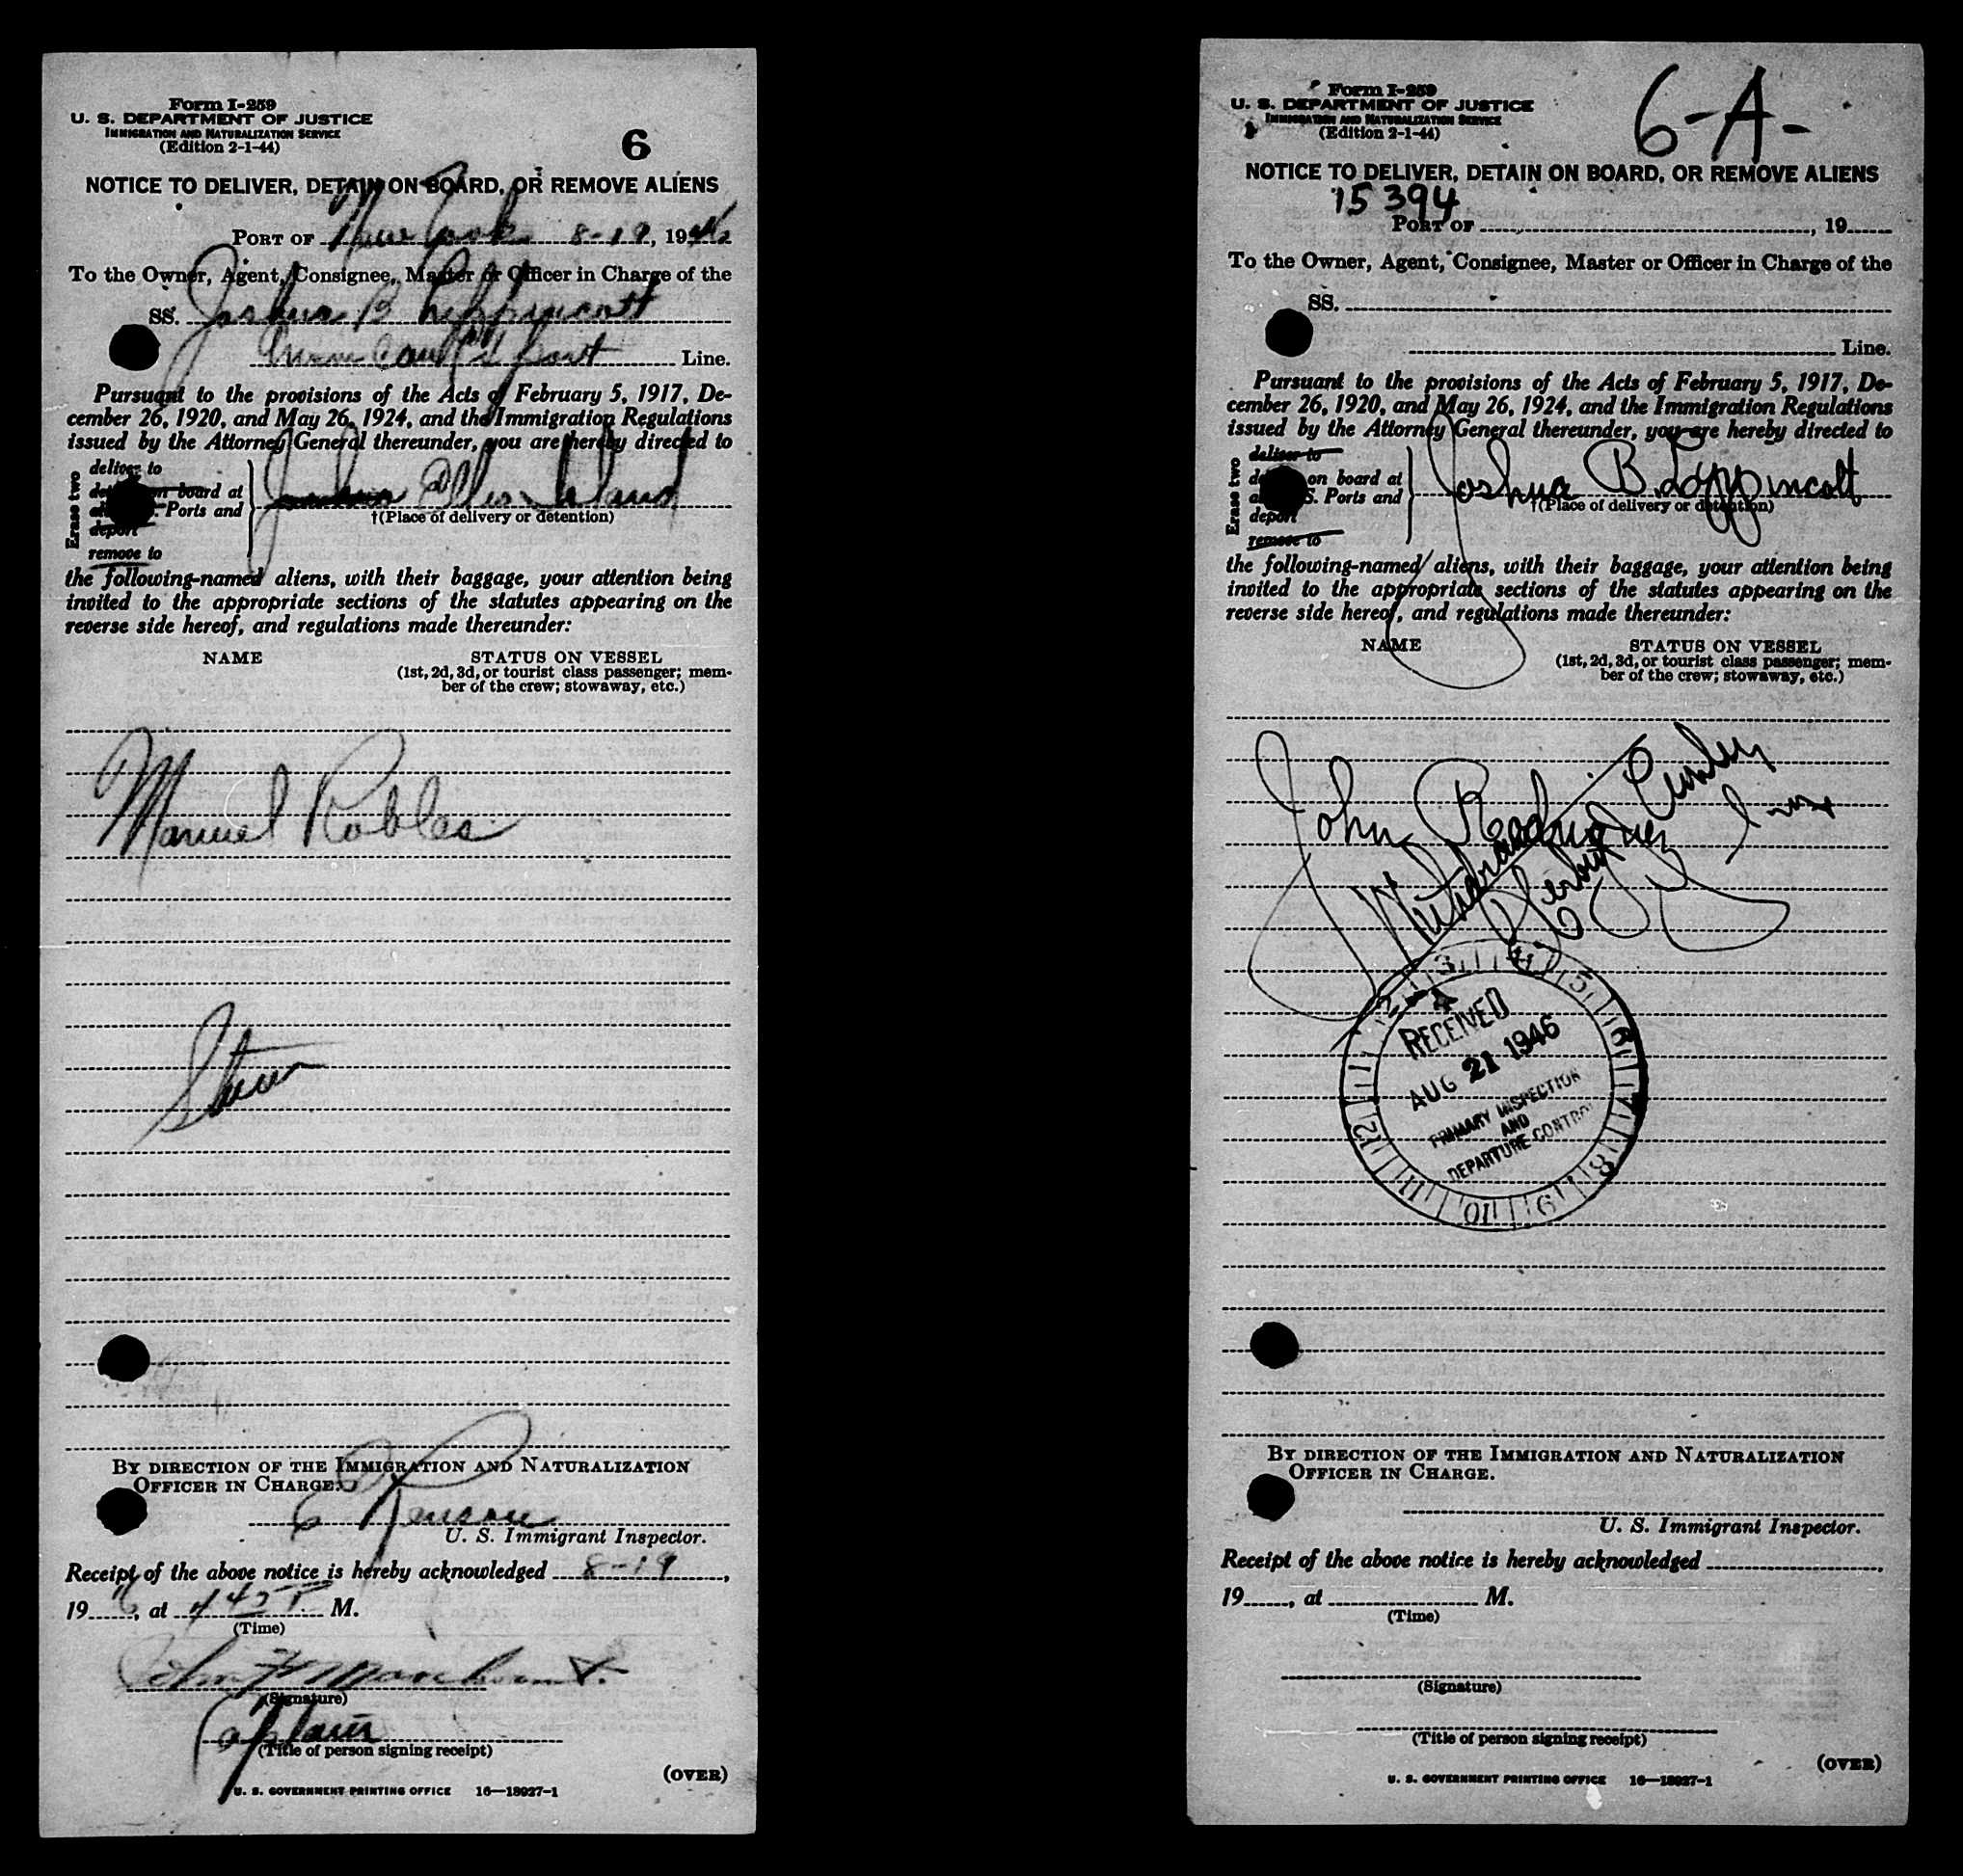 Form I-259
U. S. DEPARTMENT OF JUSTICE
IMMIGRATION AND NATURALIZATION SERVICE
(Edition 2-1-44)
6
NOTICE TO DELIVER, DETAIN ON BOARD, OR REMOVE ALIENS
PORT OF New York 8-19, 1946
To the Owner, Agent, Consignee, Master or Officer in Charge of the
SS. Joshua B Lippincott
Line.
Pursuant to the provisions of the Acts of February 5, 1917, De-
cember 26, 1920, and May 26, 1924, and the Immigration Regulations
issued by the Attorney General thereunder, you are hereby directed to
Erase two
deliver to
on board at
Ports and
deport
remove to
Ellis Island
†(Place of delivery or detention)
the following-named aliens, with their baggage, your attention being
invited to the appropriate sections of the statutes appearing on the
reverse side hereof, and regulations made thereunder:
NAME
STATUS ON VESSEL
(1st, 2d, 3d, or tourist class passenger; mem-
ber of the crew; stowaway, etc.)
Manuel Robles
BY DIRECTION OF THE IMMIGRATION AND NATURALIZATION
OFFICER IN CHARGE.
U. S. Immigrant Inspector.
Receipt of the above notice is hereby acknowledged 8-19,
19 46, at 445 P M.
(Time)
John
(Signature)
Captain
(Title of person signing receipt)
(OVER)
U. S. GOVERNMENT PRINTING OFFICE 16—18927-1
Form I-259
U. S. DEPARTMENT OF JUSTICE
IMMIGRATION AND NATURALIZATION SERVICE
(Edition 2-1-44)
6-A-
NOTICE TO DELIVER, DETAIN ON BOARD, OR REMOVE ALIENS
15394
PORT OF , 19
To the Owner, Agent, Consignee, Master or Officer in Charge of the
SS.
Line.
Pursuant to the provisions of the Acts of February 5, 1917, De-
cember 26, 1920, and May 26, 1924, and the Immigration Regulations
issued by the Attorney General thereunder, you are hereby directed to
Erase two
deliver to
on board at
S. Ports and
deport
remove to
Joshua B. Lippincott
†(Place of delivery or detention)
the following-named aliens, with their baggage, your attention being
invited to the appropriate sections of the statutes appearing on the
reverse side hereof, and regulations made thereunder:
NAME
STATUS ON VESSEL
(1st, 2d, 3d, or tourist class passenger; mem-
ber of the crew; stowaway, etc.)
John Rodriguez
3 4 5 6 7 8 9 10 11 12 1 2
RECEIVED
AUG 21 1946
PRIMARY INSPECTION
AND
DEPARTURE CONTROL
BY DIRECTION OF THE IMMIGRATION AND NATURALIZATION
OFFICER IN CHARGE.
U. S. Immigrant Inspector.
Receipt of the above notice is hereby acknowledged ,
19 , at M.
(Time)
(Signature)
(Title of person signing receipt)
(OVER)
U. S. GOVERNMENT PRINTING OFFICE 16—18927-1